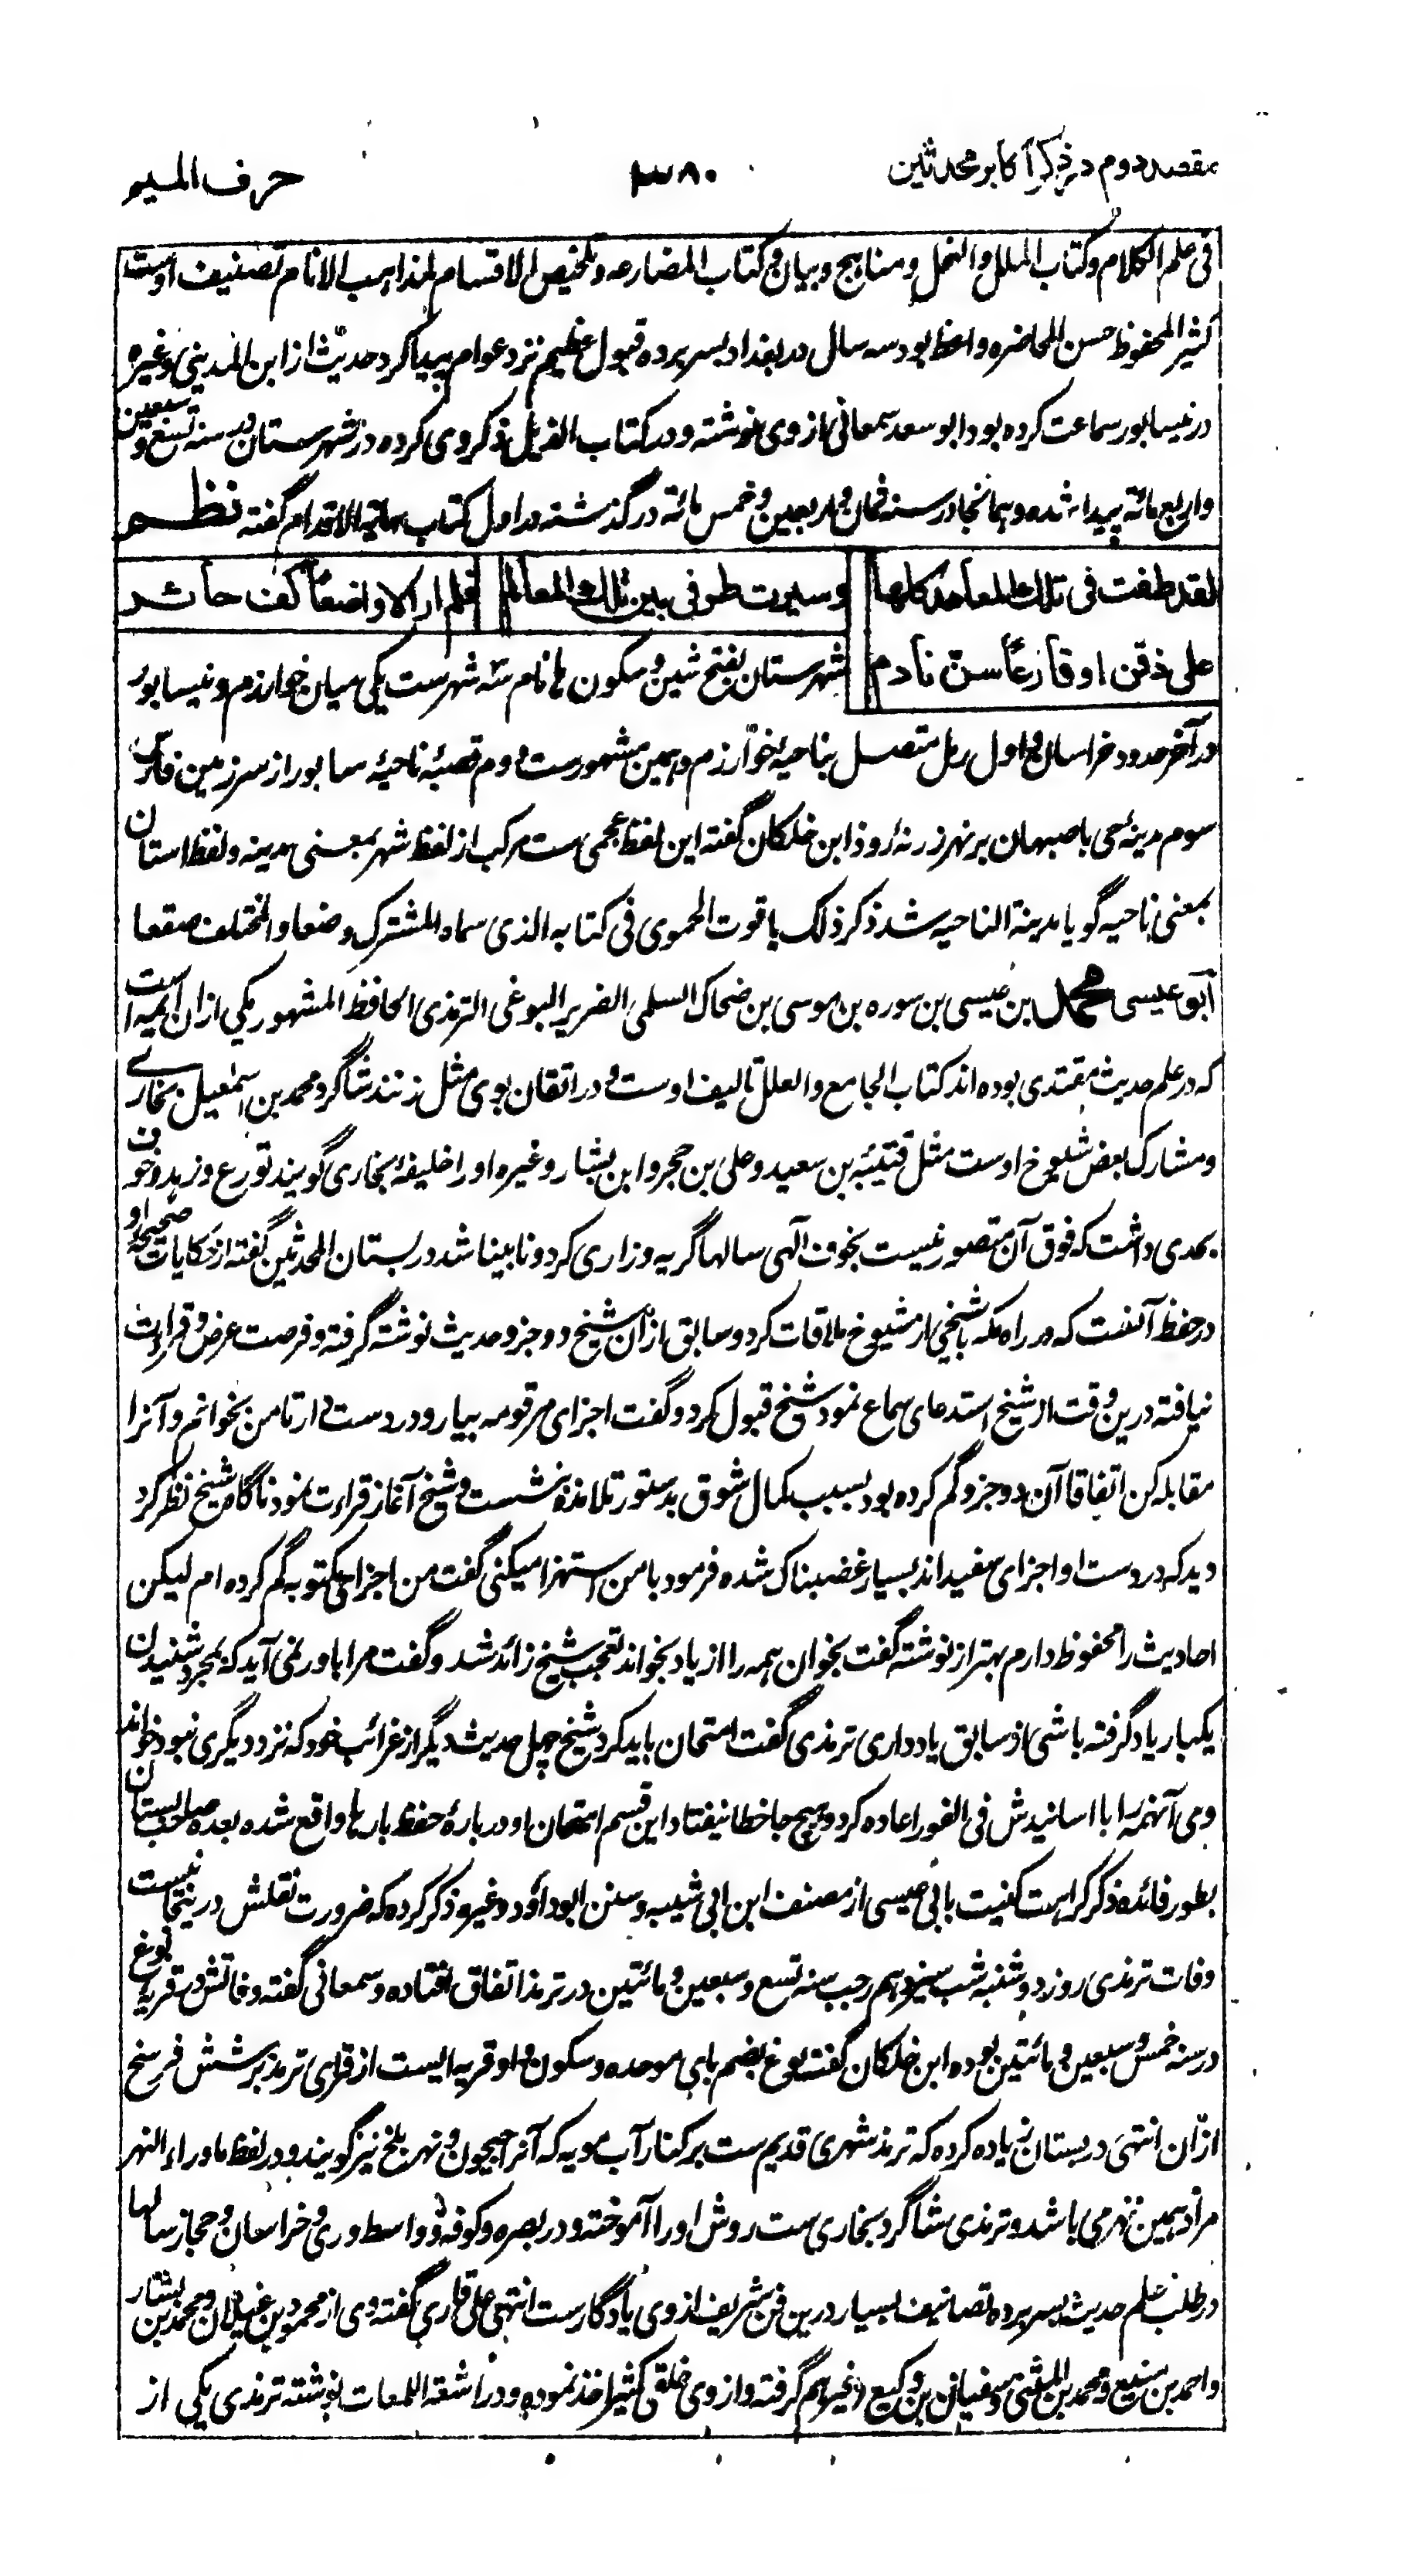 مقصد دوم در ذکر اکابر محدثین
۳۸۰
حرف المیم
فی علم الکلام و کتاب الملل والنحل و مناهج و بیان و کتاب المضارعه و تلخیص الاقسام لمذاهب الانام تصنیف اوست
کثیر المحفوظ حسن المحاضره واعظ بود سه سال در بغداد بسر برده قبول عظیم نزد عوام پیدا کرد حدیث از ابن المدینی وغیره
در نیسابور سماعت کرده بود ابو سعد سمعانی از وی نوشته و در کتاب الذیل ذکر وی کرده در شهرستان در سنه تسع و سبعین
واربع مائة پیدا شده و همانجا در سنه ثمان و اربعین و خمس مائة درگذشته در اول کتاب نهایة الاقدام گفته نظم
لقد طفت فی تلك المعاهد کلها
وسیرت طرفی بین تلك المعالم
فلم ار الا واضعاً کف حائر
علی ذقن او قارعاً سن نادم
شهرستان بفتح شین و سکون ها نام سه شهرست یکی میان خوارزم و نیسابور
در آخر حدود خراسان و اول رمل متصل بناحیهٔ خوارزم و همین مشهورست دوم قصبهٔ ناحیهٔ سابور از سرزمین فارس
سوم مدینهٔ جی باصبهان بر نهر زرنه رود ابن خلکان گفته این لفظ عجمی ست مرکب از لفظ شهر بمعنی مدینه ولفظ استان
بمعنی ناحیه گویا مدینة الناحیه شد ذکر ذلک یاقوت الحموی فی کتابه الذی سماه المشترک وضعا والمختلف صقعا
ابو عیسی محمد بن عیسی بن سوره بن موسی بن ضحاک السلمی الضریر البوغی الترمذی الحافظ المشهور یکی از ان ایمه است
که در علم حدیث مقتدی بوده اند کتاب الجامع والعلل تالیف اوست و در اتقان بوی مثل زنند شاگرد محمد بن اسمعیل بخاری
ومشارک بعض شیوخ اوست مثل قتیبه بن سعید وعلی بن حجر وابن بشار وغیره او را خلیفهٔ بخاری گویند تورع و زهد و خوف
بحدی داشت که فوق آن متصور نیست بخوف الهی سالها گریه و زاری کرد و نابینا شد در بستان المحدثین گفته از حکایات صحیحه او
در حفظ آنست که در راه مکه با شیخی از مشیوخ ملاقات کرد و سابق ازان شیخ دو جزو حدیث نوشته گرفته و فرصت عرض و قراءت
نیافته درین وقت از شیخ استدعای سماع نمود شیخ قبول کرد و گفت اجزای مرقومه بیار و در دست دار تا من بخوانم و آنرا
مقابله کن اتفاقا آن دو جزو گم کرده بود بسبب کمال شوق بدستور تلامذه بنشست و شیخ آغاز قراءت نمود ناگاه شیخ نظر کرد
دید که در دست او اجزای سفید اند بسیار غضبناک شده فرمود با من استهزا میکنی گفت من اجزای مکتوبه گم کرده ام لیکن
احادیث را محفوظ دارم بهتر از نوشته گفت بخوان همه را از یاد بخواند تعجب شیخ زائد شد و گفت مرا باور نمی آید که بمجرد شنیدن
یکبار یاد گرفته باشی از سابق یاد داری ترمذی گفت امتحان باید کرد شیخ چهل حدیث دیگر از غرائب خود که نزد دیگری نبود خواند
وی آنهمه را با اسانیدش فی الفور اعاده کرد و هیچ جا خطا نیفتاد این قسم امتحان او در بارهٔ حفظ بارها واقع شده بعده صاحب بستان
بطور فائده ذکر کراهت کنیت بابی عیسی از مصنف ابن ابی شیبه وسنن ابو داؤد وغیره ذکر کرده که ضرورت نقلش درینجا نیست
وفات ترمذی روز دوشنبه شب سیزدهم رجب سنه تسع وسبعین و مائتین در ترمذ اتفاق افتاده وسمعانی گفته وفاتش در قریهٔ بوغ
در سنه خمس و سبعین و مائتین بوده ابن خلکان گفته بوغ بضم بای موحده وسکون واو قریه ایست از قرای ترمذ بر شش فرسخ
ازان انتهی در بستان زیاده کرده که ترمذ شهری قدیم ست بر کنار آب مویه که آنرا جیحون و نهر بلخ نیز گویند و در لفظ ماوراء النهر
مراد همین نهر می باشد و ترمذی شاگرد بخاری ست روش او را آموخته و در بصره و کوفه و واسط و ری و خراسان و حجاز سالها
در طلب علم حدیث بسر برده تصانیف بسیار درین فن شریف از وی یادگارست انتهی علی قاری گفته وی از محمود بن غیلان و محمد بن بشار
واحمد بن منیع و محمد بن المثنی و سفیان بن وکیع وغیرهم گرفته و از وی خلقی کثیر اخذ نموده و در اشعة اللمعات نوشته ترمذی یکی از